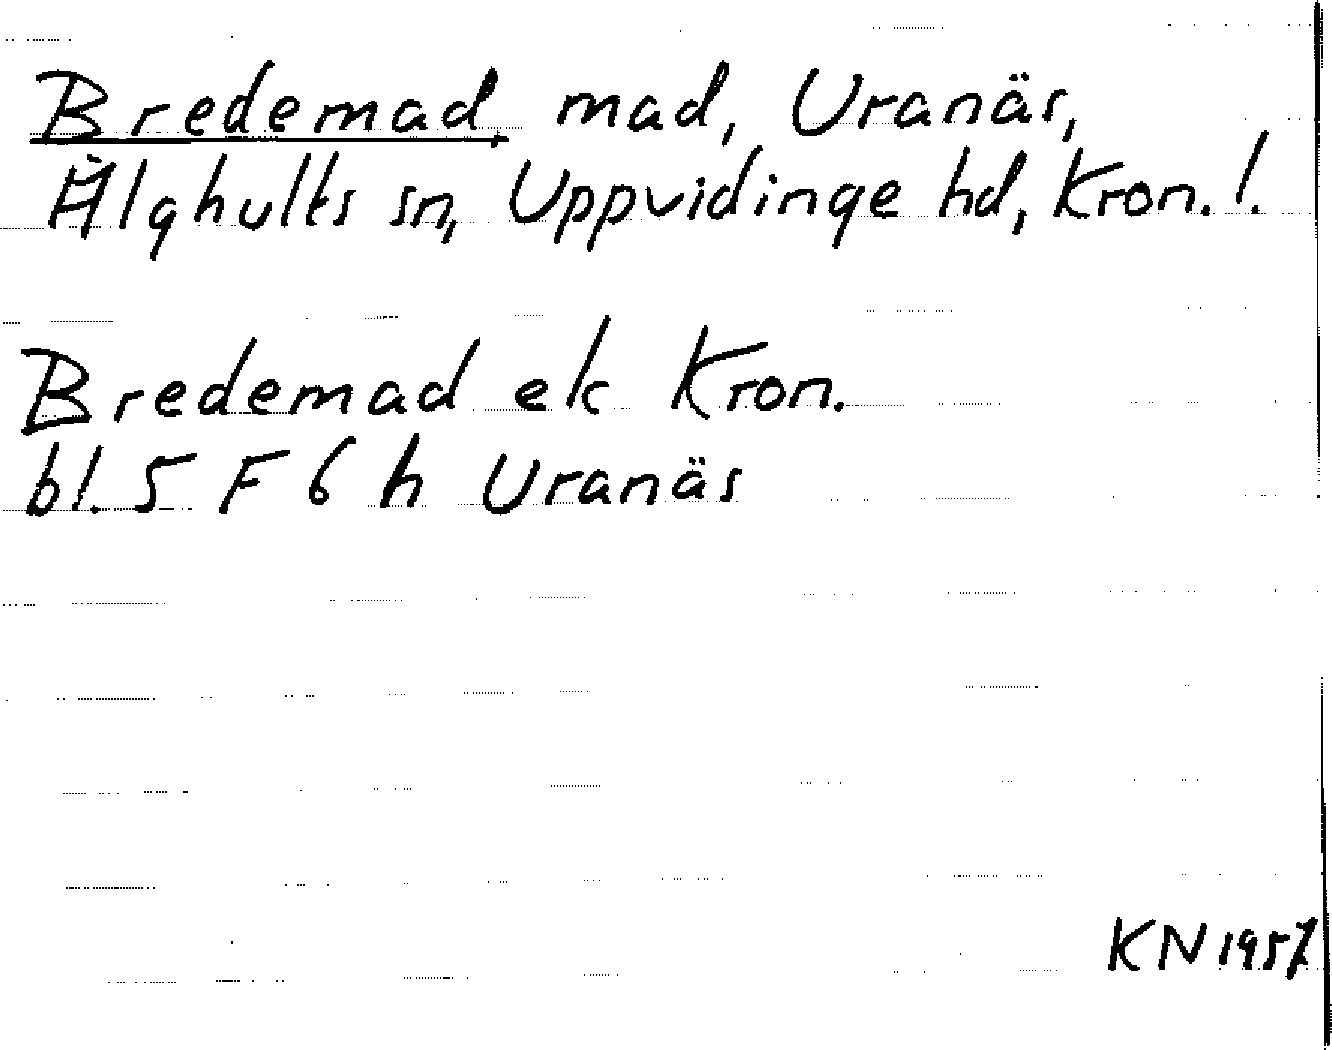 Bredemad, mad, Uranäs,
Älghults sn, Uppvidinge hd, Kron. l.
Bredemad ek Kron.
bl. 5 F 6 h Uranäs
KN 1957